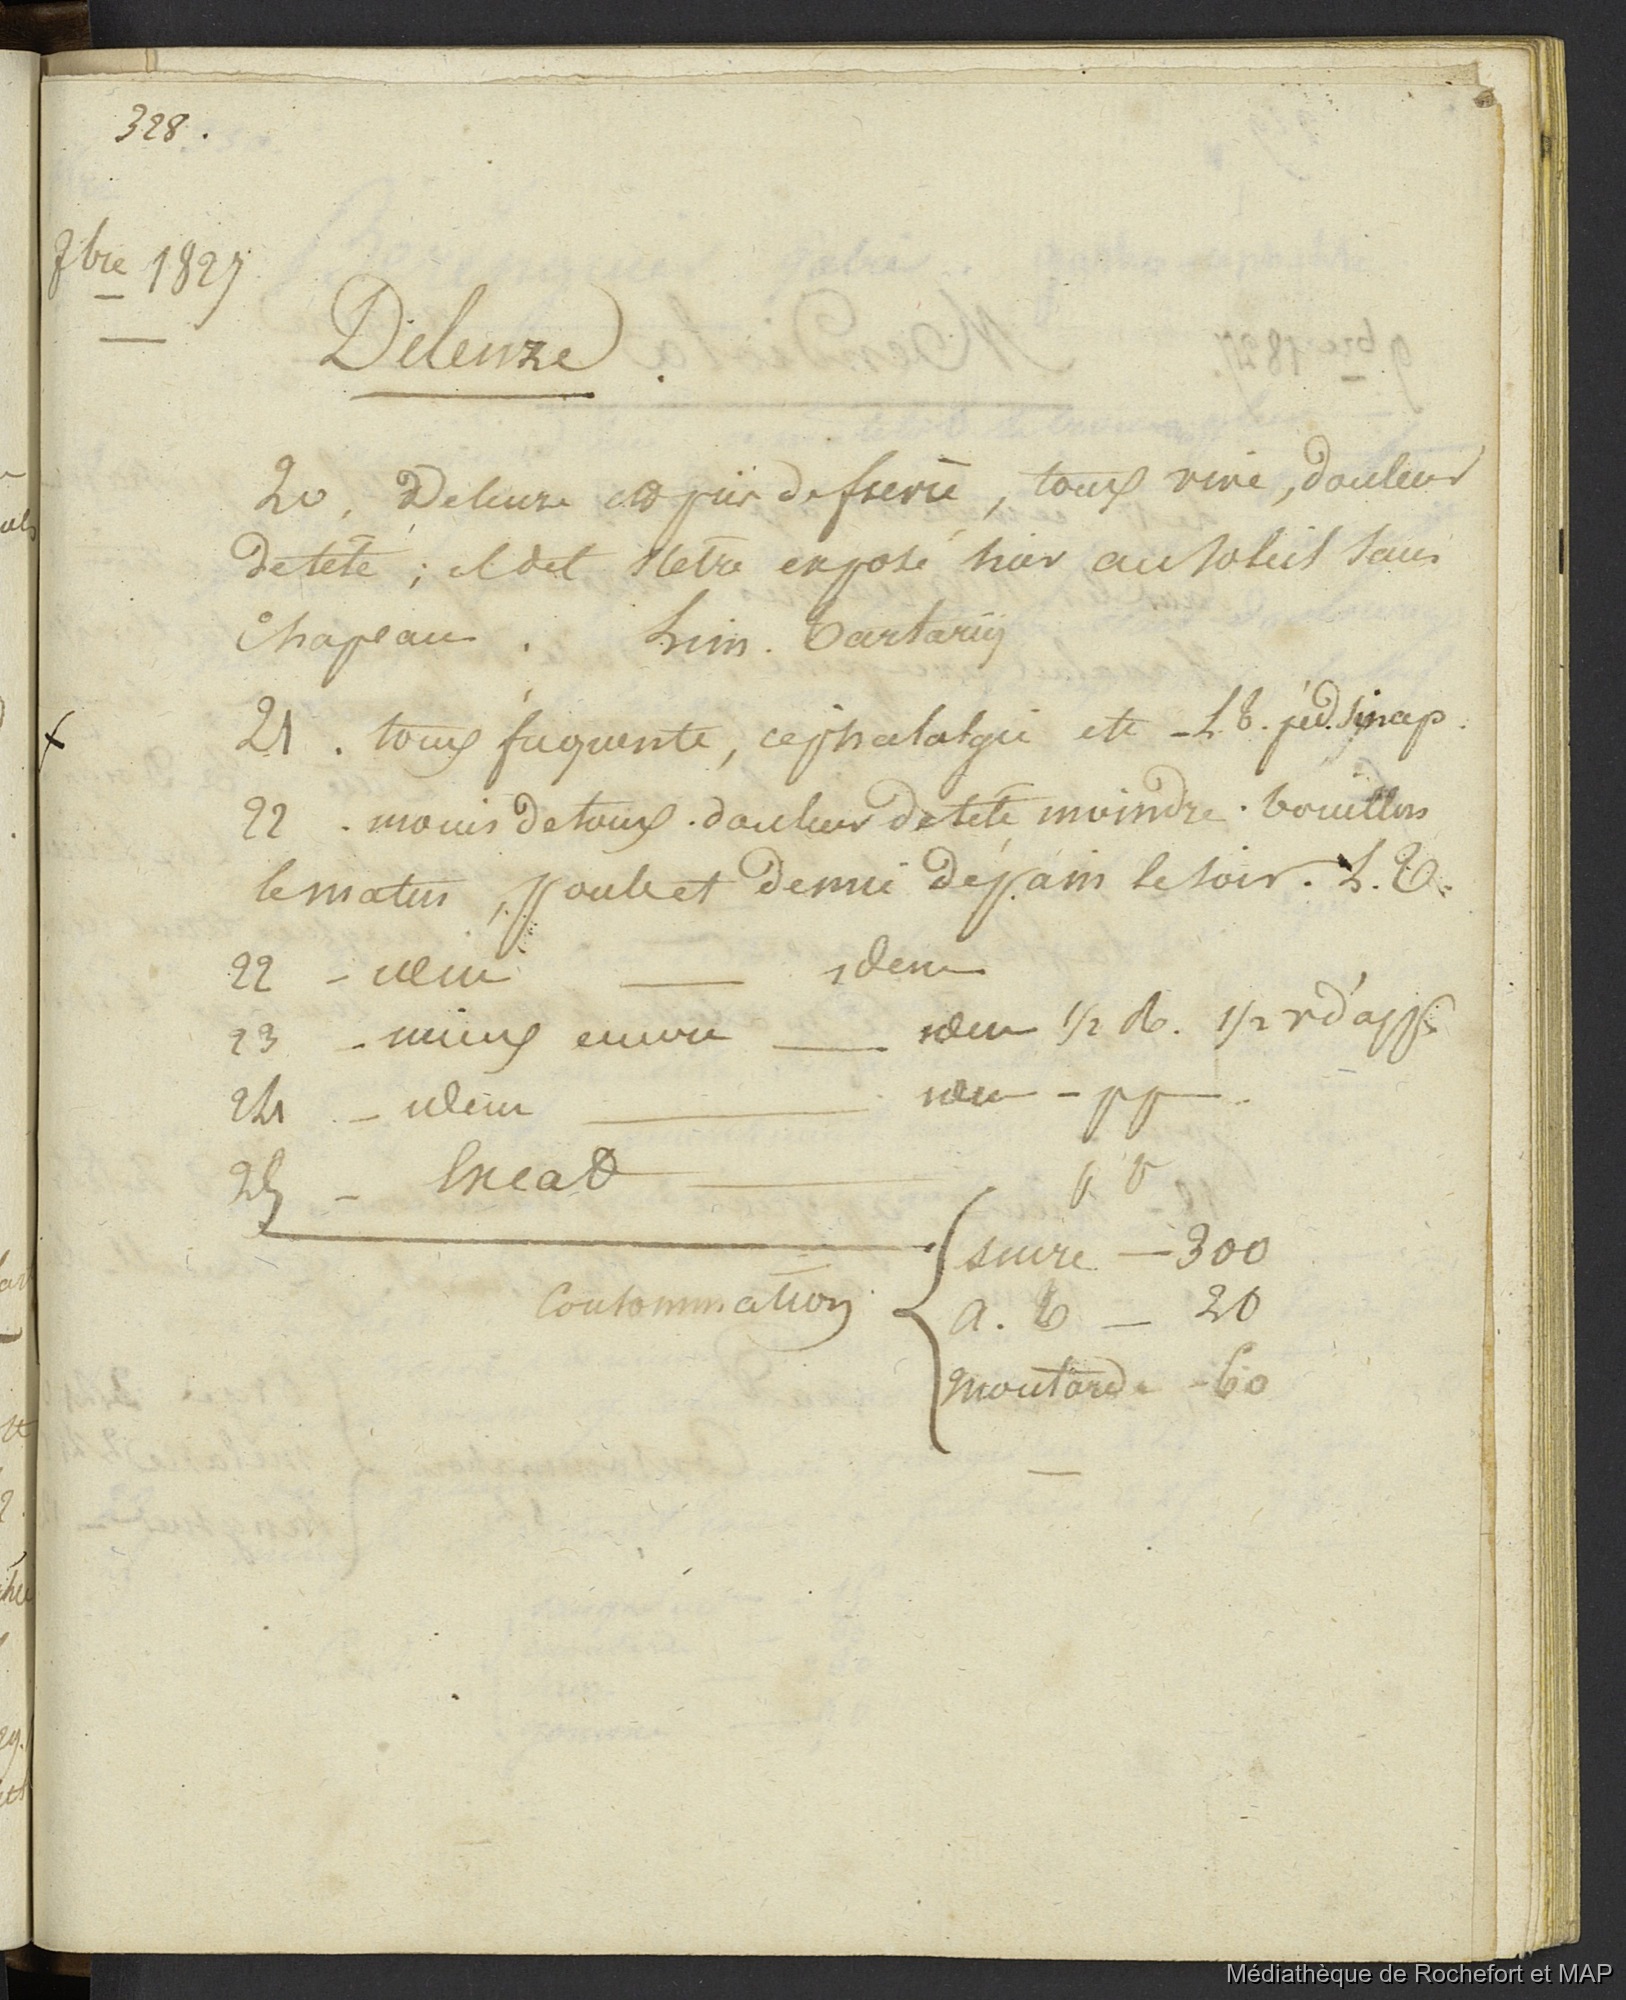 328.
9bre 1827
Deleuze.
20, Deleuze est pris de fievre, toux vive, douleur
de tête ; il dit s'etre exposé hier au soleil sans
chapeau. Lim. tartariq
21. toux frequente, cephalalgie etc - L t. péd. sinap.
22. moins de toux. douleur de tête moindre. bouillon
le matin, poulet demi de pain le soir. L. T.
22 - idem — idem
23 - mieux encore — idem 1/2 1/2 r d'app
24 - idem — idem - pp
25 - Exeat
Consommation
sucre — 300
a. t — 20
moutarde - 60
Médiathèque de Rochefort et MAP